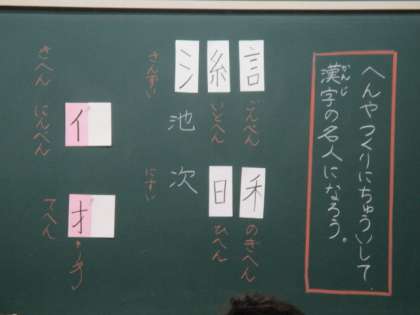 へんやつくりにちゅういして、
漢字の名人になろう。
かんじ
言
ごんべん
禾
のぎへん
糸
いとへん
日
ひへん
氵
さんずい
池
次
にすい
イ
にんべん
扌
てへん